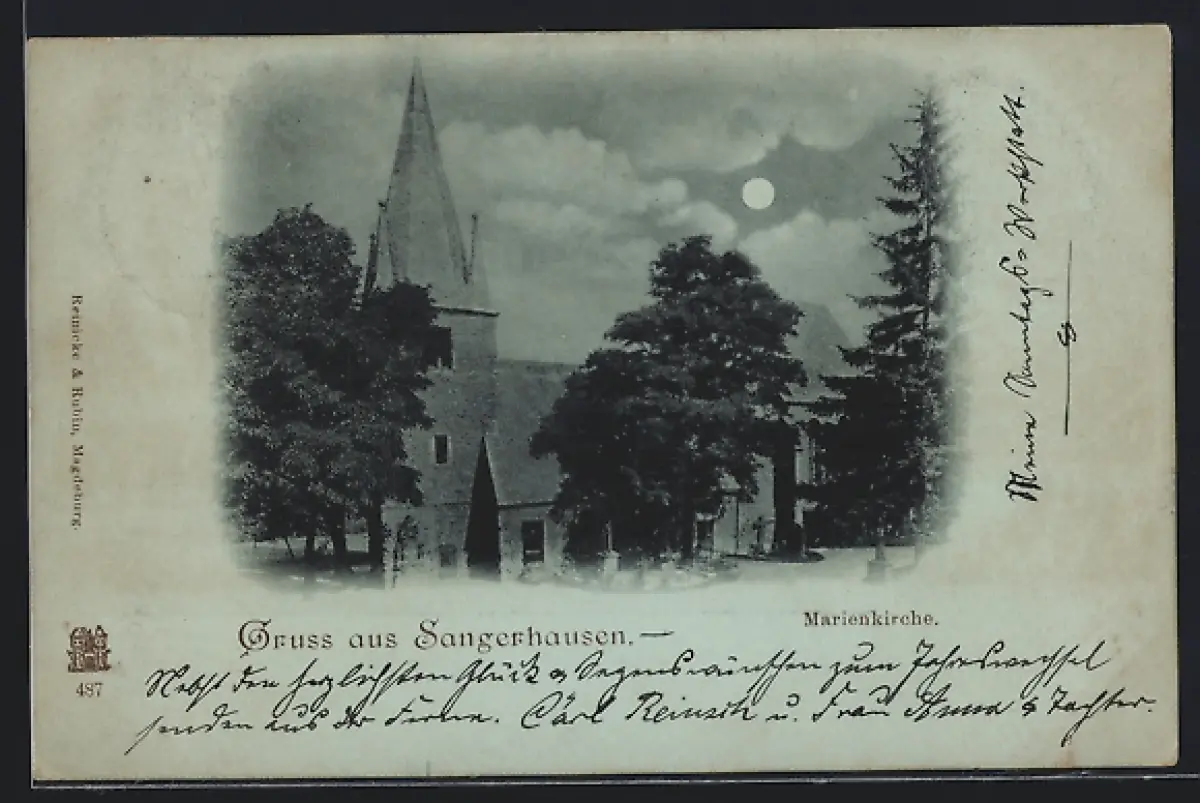 Gruss aus Sangerhausen.—
Marienkirche.
Nebst den herzlichsten Glück & Segenswünschen zum Jahreswechsel
senden aus der Ferne. Carl Reinsch u. Frau Anna & Tochter.
Meine Werkstatt.
Reinicke & Rubin, Magdeburg.
487